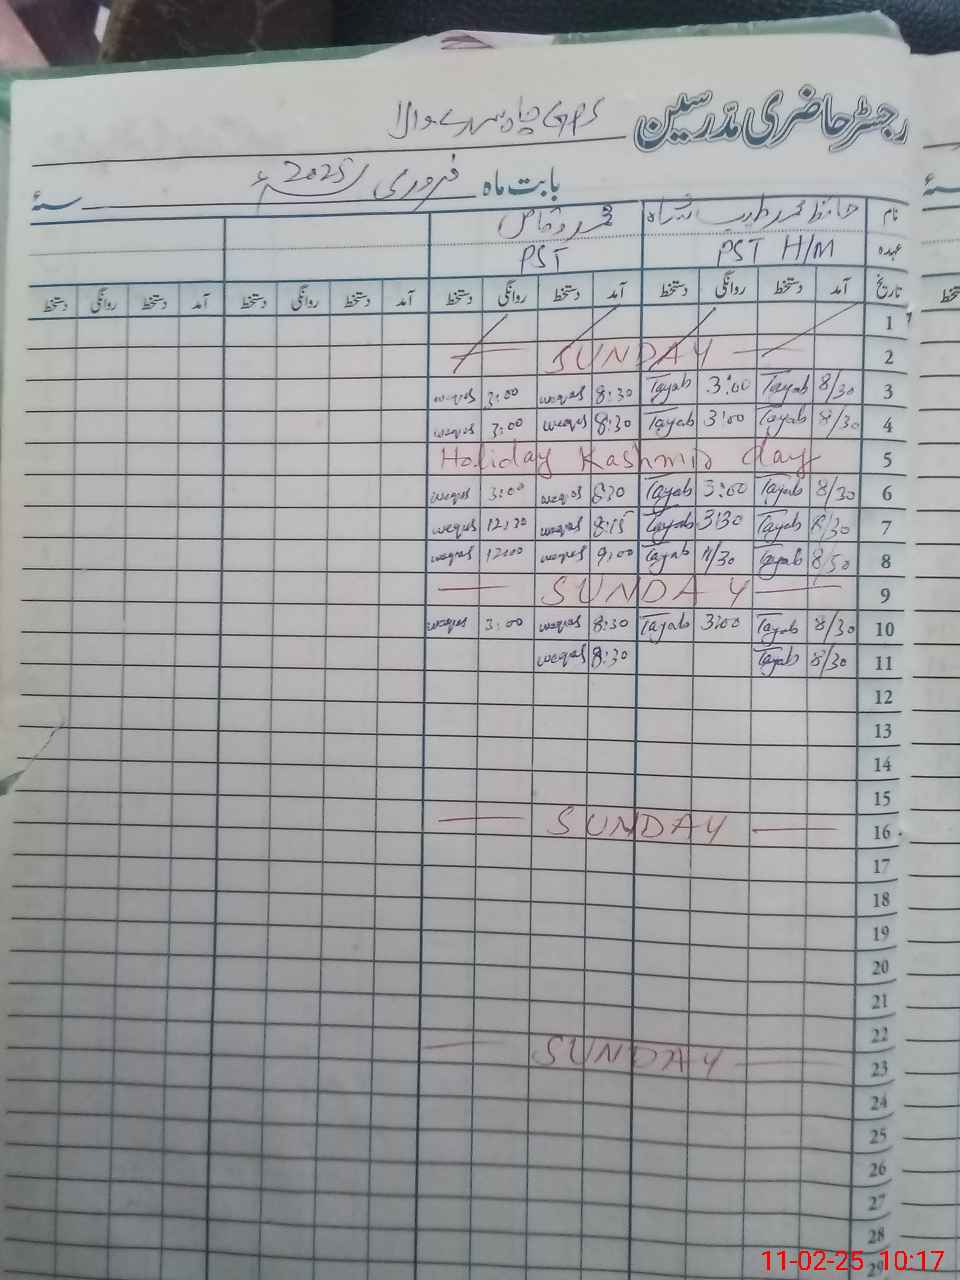 رجسٹر حاضری مدرسین GPS چاہ سہرے والا
بابت ماہ فروری 2025ء سنۂ
نام حافظ محمد طیب شاہ محمد وقاص
عہدہ PST H/M PST
تاریخ آمد دستخط روانگی دستخط آمد دستخط روانگی دستخط آمد دستخط روانگی دستخط آمد دستخط روانگی دستخط
1
2 SUNDAY
3 8/30 Tayab 3:00 Tayab 8:30 weqas 3:00 weqas
4 8/30 Tayab 3:00 Tayab 8:30 weqas 3:00 weqas
5 Holiday Kashmir day
6 8/30 Tayab 3:00 Tayab 8:30 weqas 3:00 weqas
7 8/30 Tayab 3:30 Tayab 8:15 weqas 12:30 weqas
8 8/50 Tayab 11/30 Tayab 9:00 weqas 12:00 weqas
9 SUNDAY
10 8/30 Tayab 3:00 Tayab 8:30 weqas 3:00 weqas
11 8/30 Tayab 8:30 weqas
12
13
14
15
16 SUNDAY
17
18
19
20
21
22
23 SUNDAY
24
25
26
27
28
29
11-02-25 10:17